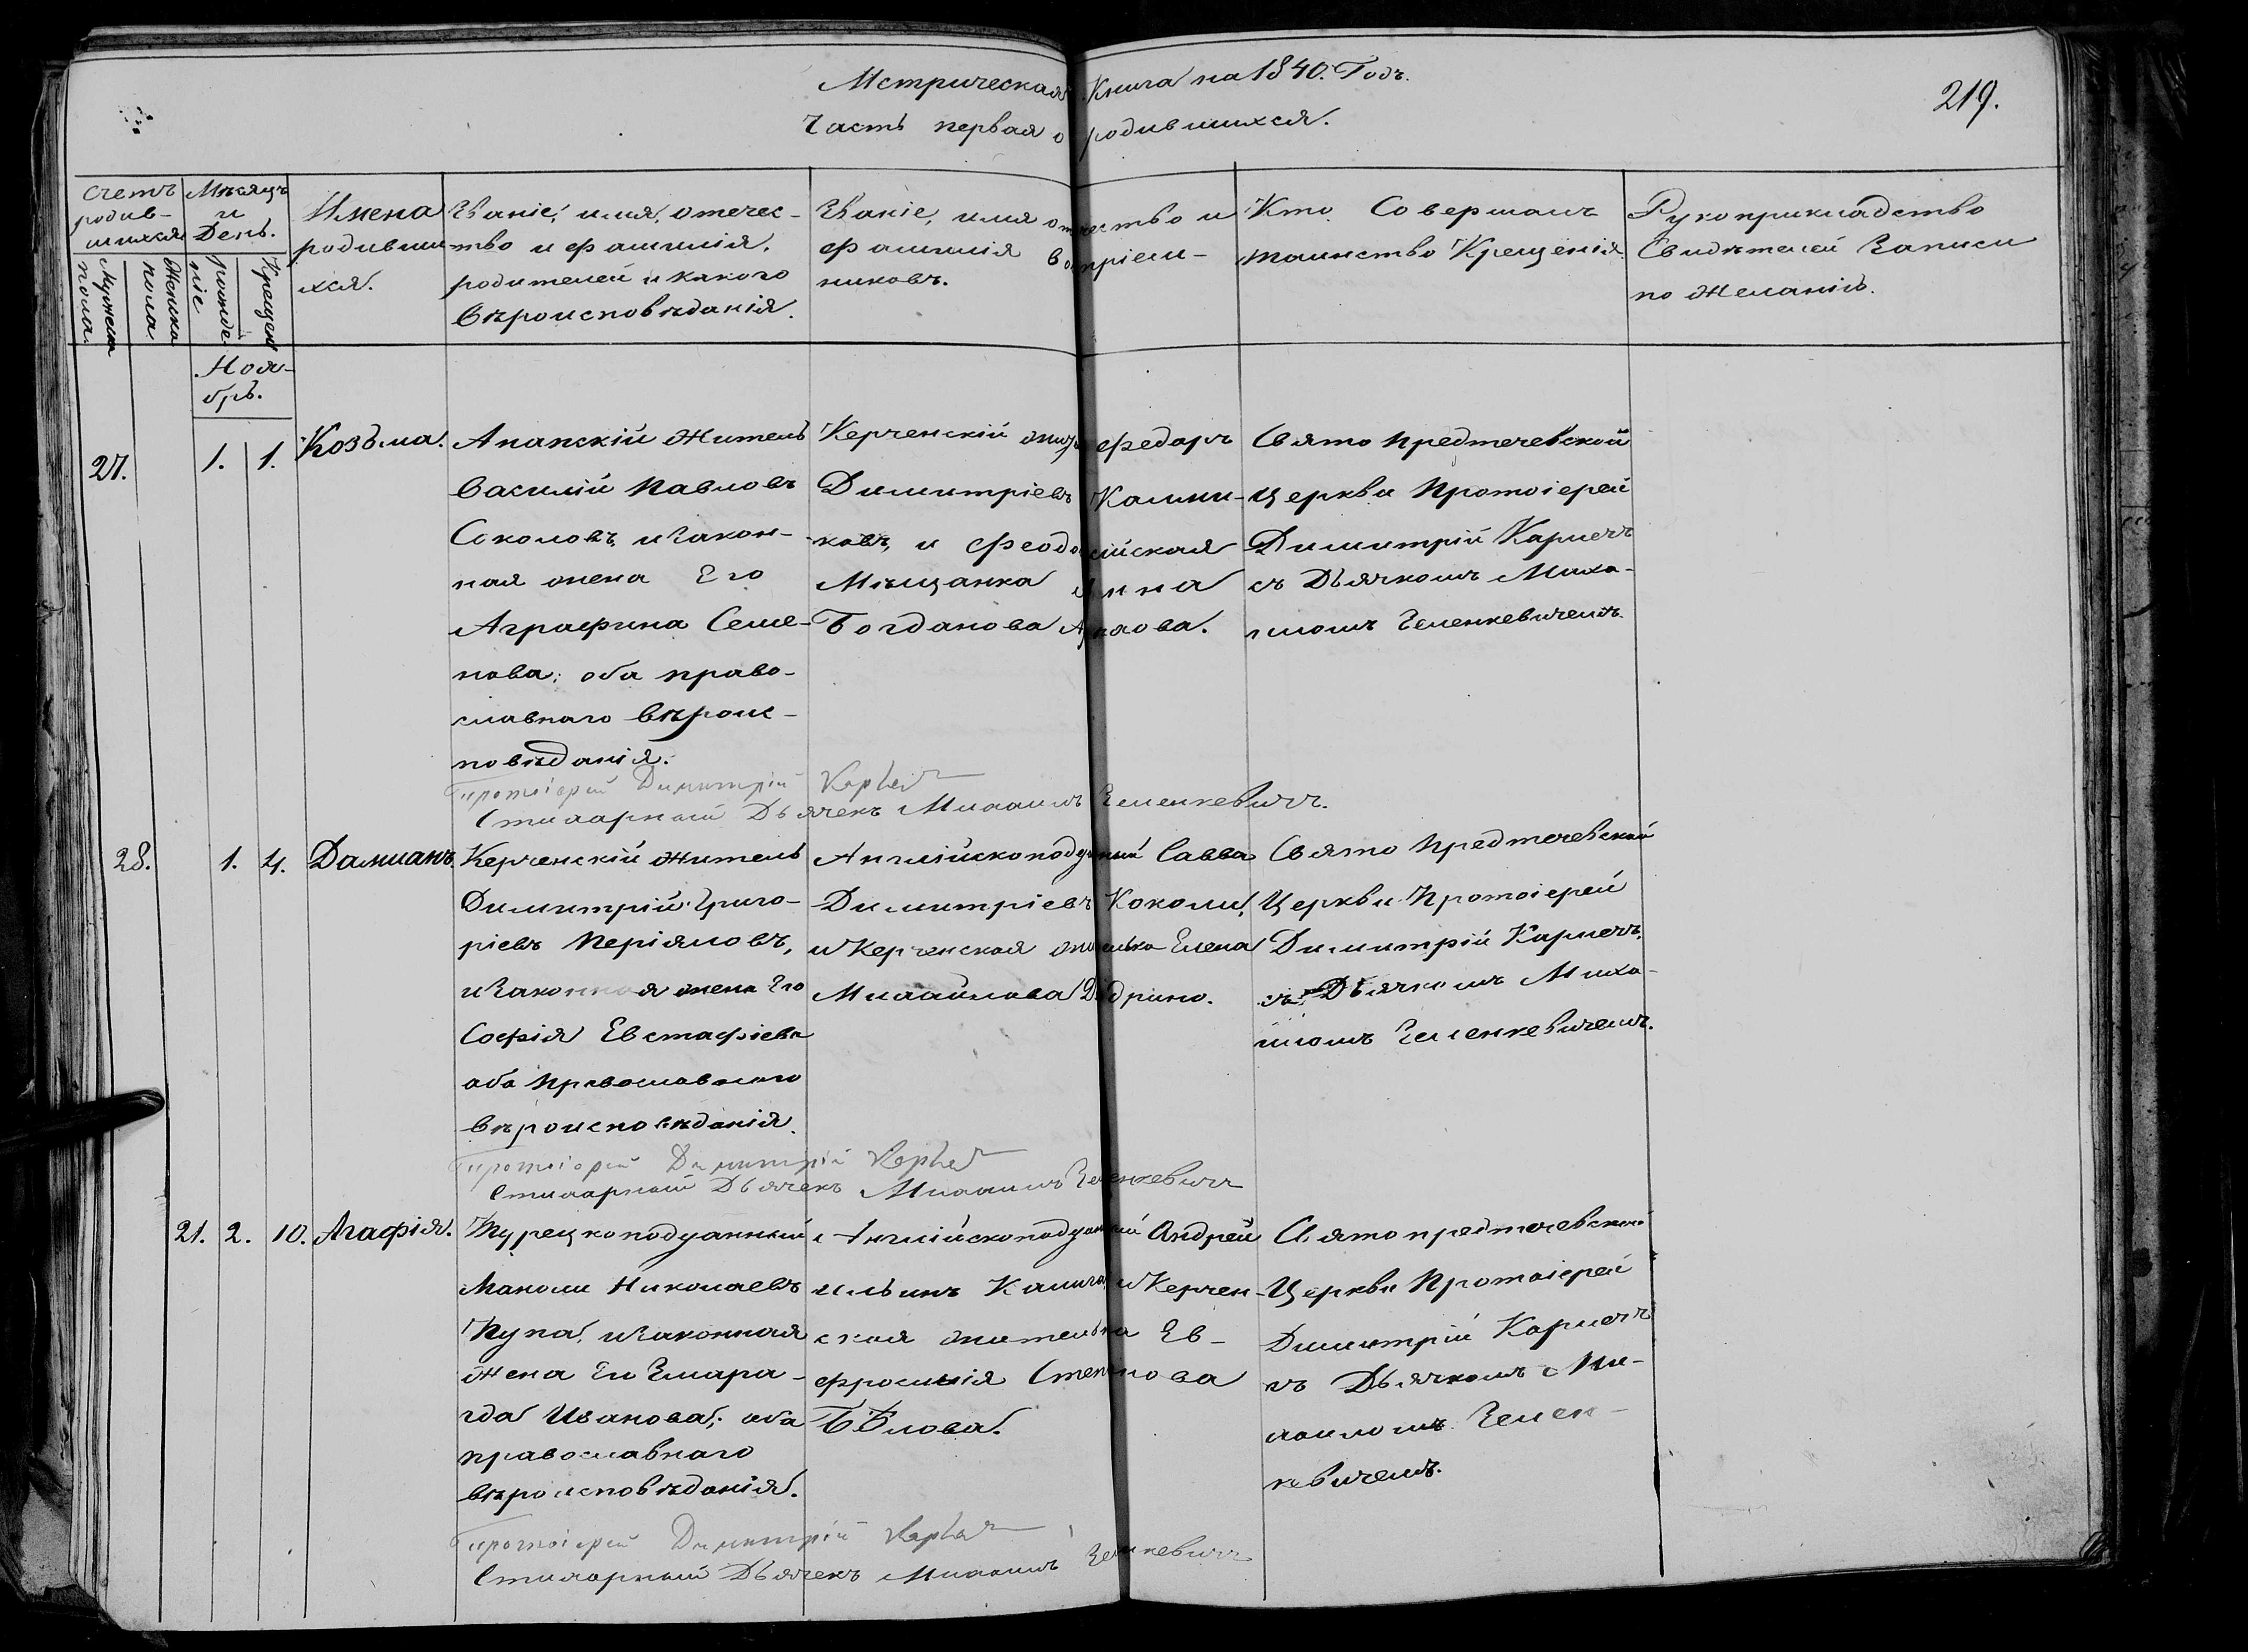 Метрическая Книга на 1840. Годъ.
219.
Часть первая о родившихся.
Счетъ родив-
шихся
Мужеска пола
Женска пола
Мѣсяцъ
и
День.
рожденіе
Крещені
Имена
родивши
хся.
Званіе, имя, отечес-
тво и фамилія,
родителей и какого
вѣроисповѣданія.
Званіе, имя отчество и
фамилія воспріем-
никовъ.
Кто Совершалъ
таинство Крещенія
Рукоприкладство
Свидѣтелей Записи
по желанію.
Ноя-
брь.
27.
1. 1.
Козьма.
Анапскій житель
Василій Павловъ
Соколовъ, и закон-
ная жена Его
Аграфина Семе-
нова; оба право-
славнаго вѣроис-
повѣданія.
Керченскій Федоръ
Димитріевъ Калини-
ковъ, и Феодосійская
Мѣщанка Анна
Богданова
Свято Предтечевской
Церкви Протоіерей
Димитрій Карпечъ
съ Дьячкомъ Миха-
иломъ Зеленкевичемъ.
Протоіерей Димитрій
Стихарный Дьячекъ Михаилъ Зеленкевичъ.
28.
1. 4.
Даміанъ.
Керченскій житель
Димитрій Григо-
ріевъ Періяловъ,
и законная жена Его
Софія Евстафіева
оба Православнаго
вѣроисповѣданія.
Англійскоподданный Савва
Димитріевъ Коколи,
и Керченская жителька Елена
Михайлова
Свято Предтечевской
Церкви Протоіерей
Димитрій Карпечъ,
съ Дьячкомъ Миха-
иломъ Зеленкевичемъ.
Протоіерей Димитрій
Стихарный Дьячекъ Михаилъ Зеленкевичъ
21. 2. 10.
Агафія.
Турецкоподданный
Маноли Николаевъ
и законная
Жена Его Змара-
гда Иванова; оба
православнаго
вѣроисповѣданія.
Англійскоподданный Андрей
Ильинъ и Керчен-
ская жителька Ев-
фросинія Степанова
Бѣлова.
Свято предтечевской
Церкви Протоіерей
Димитрій Карпечъ
съ Дьячкомъ Ми-
хаиломъ Зелен-
кевичемъ.
Протоіерей Димитрій
Стихарный Дьячекъ Михаилъ Зеленкевичъ